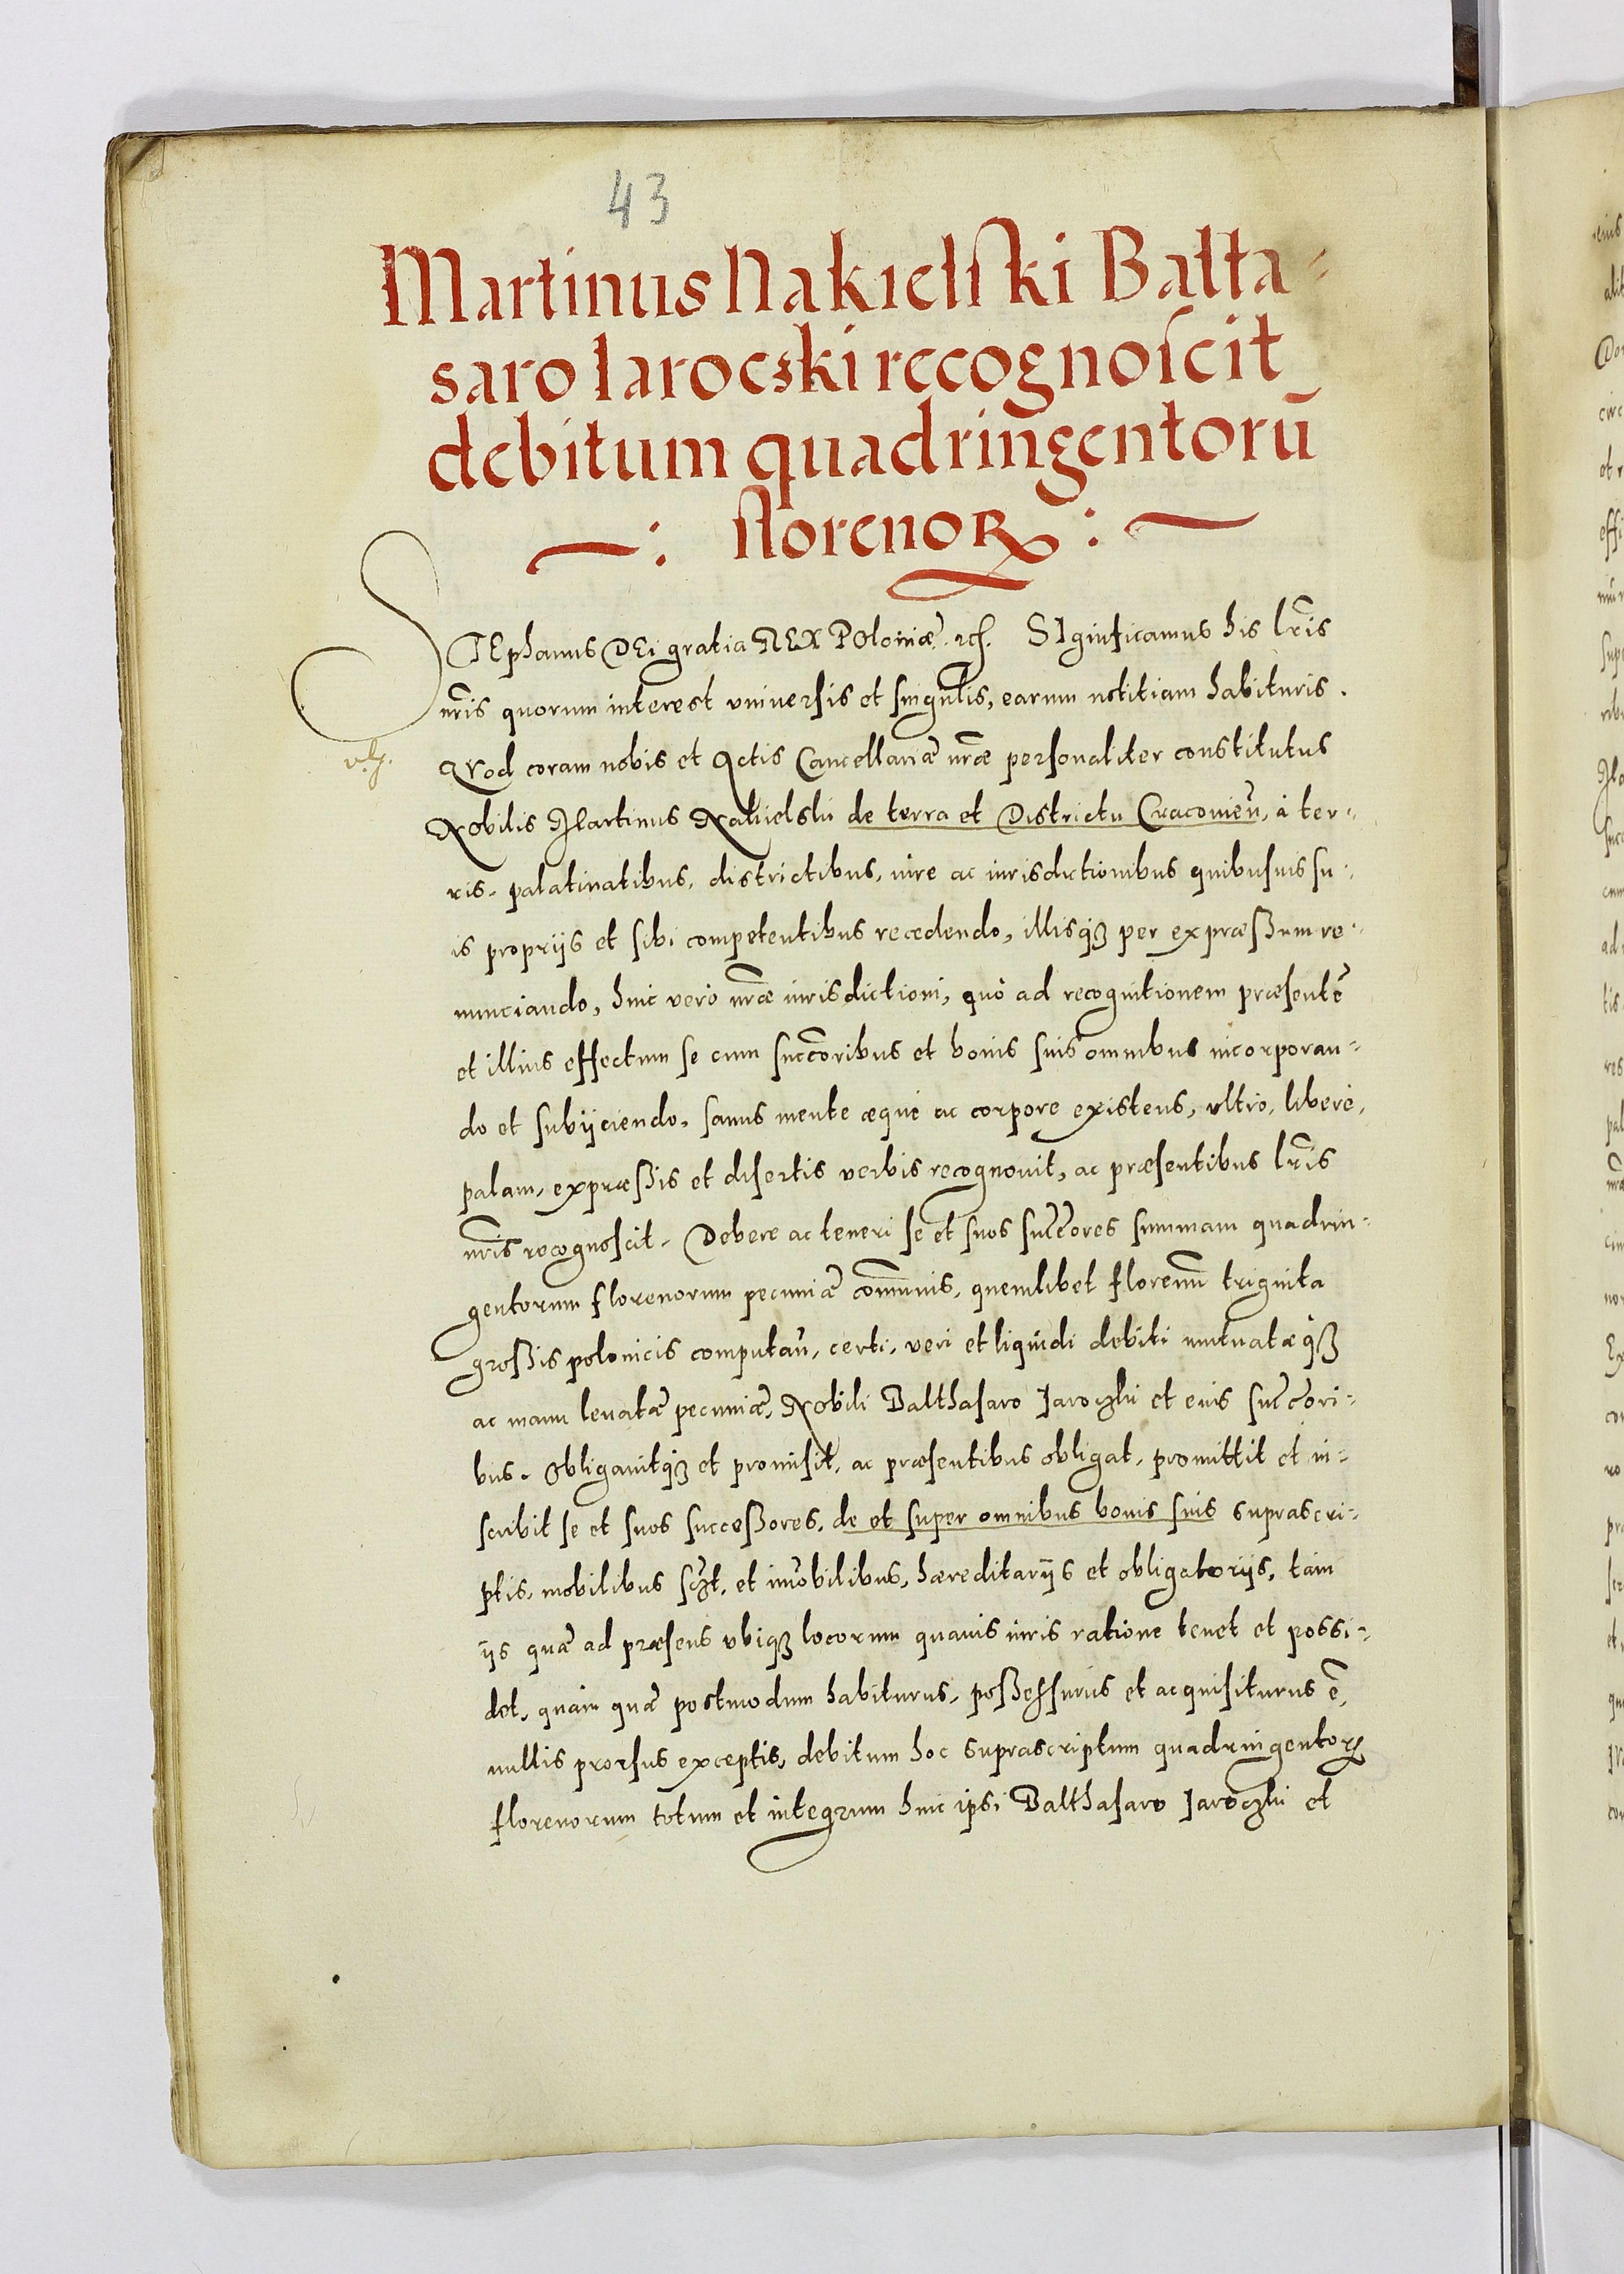 43
Martinus Nakielski Balta-
saro Jarocski recognoscit
debitum quadringentorū
florenoꝝ
STEphanus DEi gratia REX POloniæ. etc. SIgnificamus his lr̄is
nr̄is quorum interest vniuersis et singulis, earum notitiam habituris.
QVod coram nobis et Actis Cancellariæ nr̄æ personaliter constitutus
Nobilis Martinus Nakielski de terra et Districtu Cracouieñ, à ter-
ris, palatinatibus, districtibus, iure ac iurisdictionibus quibusuis su-
is proprijs et sibi competentibus recedendo, illisqꝫ per expræßum re-
nunciando, huic verò nr̄æ iurisdictioni, quò ad recognitionem præsentē
et illius effectum se cum succōribus et bonis suis omnibus incorporan-
do et subijciendo, sanus mente æquè ac corpore existens, vltrò, liberè,
palam, expræßis et disertis verbis recognouit, ac præsentibus lr̄is
nr̄is recognoscit. Debere ac teneri se et suos succc̄ores summam quadrin-
gentorum florenorum pecuniæ com̄unis, quemlibet florenum̄ triginta
großis polonicis computañ, certi, veri et liquidi debiti mutuatæqꝫ
ac manu leuatæ pecuniæ, Nobili Balthasaro Jaroczki et eius succōri-
bus. Obligauitqꝫ et promisit, ac præsentibus obligat, promittit et in-
scribit se et suos succeßores, de et super omnibus bonis suis suprascri-
ptis, mobilibus sczt, et im̄obilibus, hæreditarijs et obligatorijs, tàm
ijs quæ ad præsens vbiqꝫ locorum quauis iuris ratione tenet et possi-
det, quàm quæ postmodum habiturus, poßessurus et acquisiturus ē,
nullis prorsus exceptis, debitum hoc suprascriptum quadringentoꝝ
florenorum totum et integrum huic ipsi Balthasaro Jaroczki et